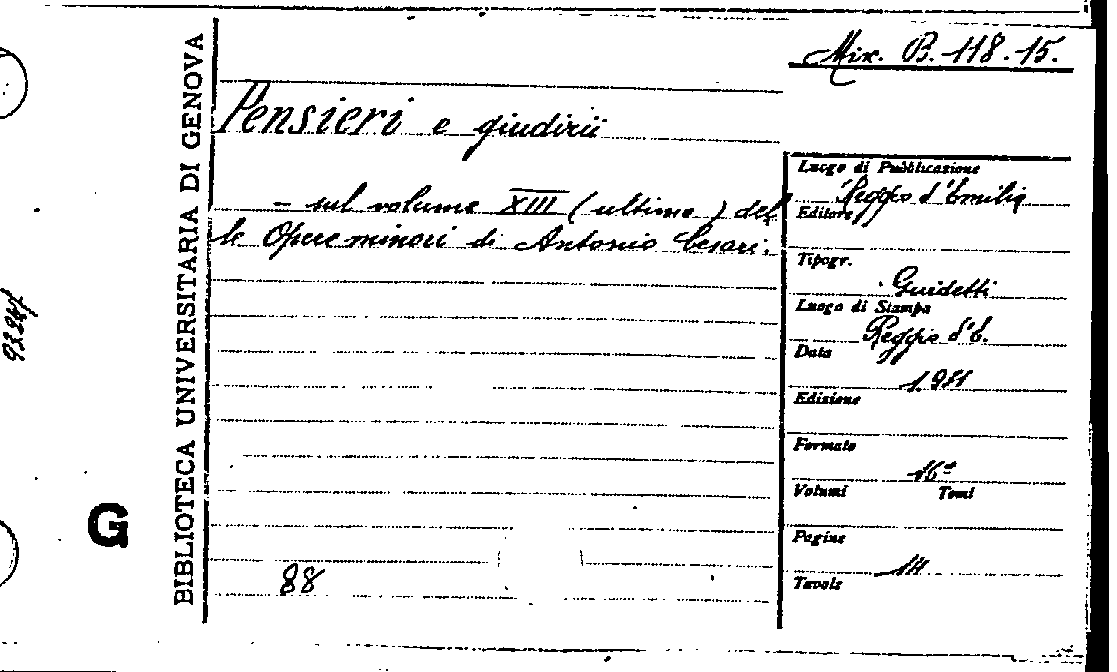 Mix. B. 118. 15.
BIBLIOTECA UNIVERSITARIA DI GENOVA
Pensieri e giudizii
- sul volume XIII (ultimo) del
le Opere minori di Antonio Cesari.
Luogo di Pubblicazione
Reggio d'Emilia
Editore
Tipogr.
Guidetti
Luogo di Stampa
Reggio d'E.
Data
1911
Edizione
Formato
16°
Volumi Tomi
Pagine
14
Tavole
88
G